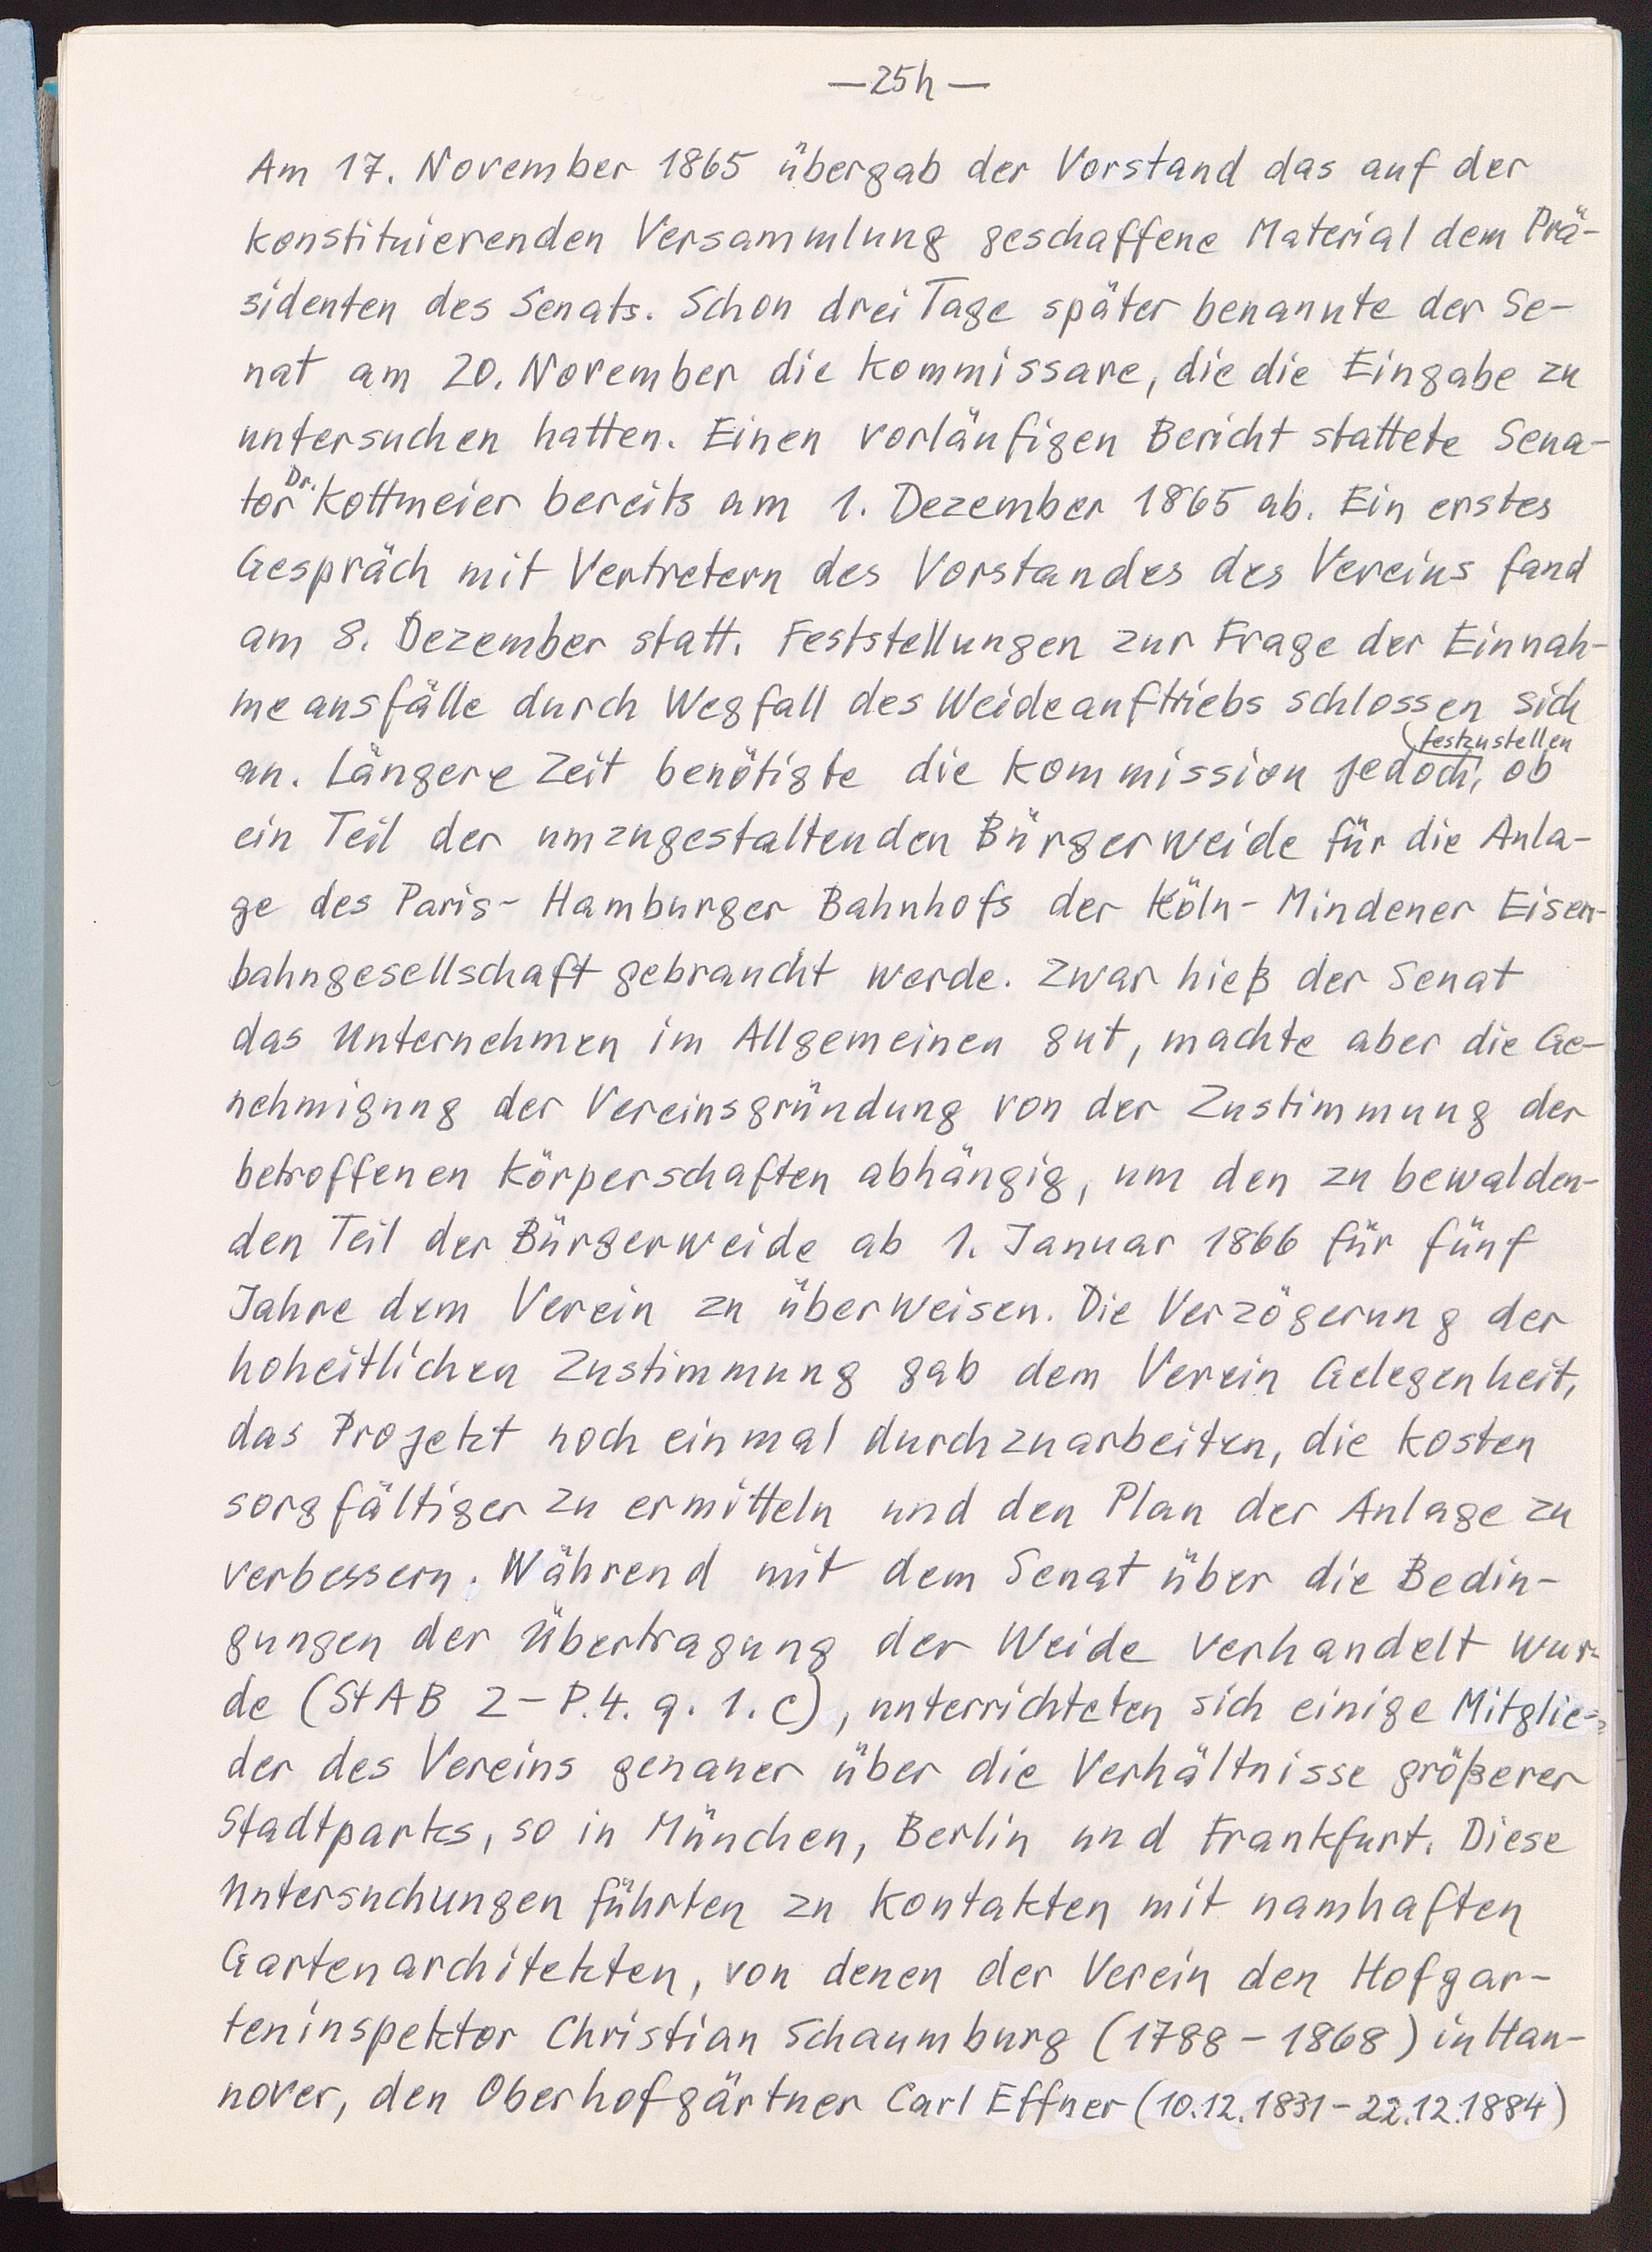 —25h—
Am 17. November 1865 übergab der Vorstand das auf der
konstituierenden Versammlung geschaffene Material dem Prä-
sidenten des Senats. Schon drei Tage später benannte der Se-
nat am 20. November die Kommissare, die die Eingabe zu
untersuchen hatten. Einen vorläufigen Bericht stattete Sena-
tor Dr. Kottmeier bereits am 1. Dezember 1865 ab. Ein erstes
Gespräch mit Vertretern des Vorstandes des Vereins fand
am 8. Dezember statt. Feststellungen zur Frage der Einnah-
meausfälle durch Wegfall des Weideauftriebs schlossen sich
an. Längere Zeit benötigte die Kommission jedoch, festzustellen ob
ein Teil der umzugestaltenden Bürgerweide für die Anla-
ge des Paris-Hamburger Bahnhofs der Köln-Mindener Eisen-
bahngesellschaft gebraucht werde. Zwar hieß der Senat
das Unternehmen im Allgemeinen gut, machte aber die Ge-
nehmigung der Vereinsgründung von der Zustimmung der
betroffenen Körperschaften abhängig, um den zu bewalden-
den Teil der Bürgerweide ab 1. Januar 1866 für fünf
Jahre dem Verein zu überweisen. Die Verzögerung der
hoheitlichen Zustimmung gab dem Verein Gelegenheit,
das Projekt noch einmal durchzuarbeiten, die Kosten
sorgfältiger zu ermitteln und den Plan der Anlage zu
verbessern. Während mit dem Senat über die Bedin-
gungen der Übertragung der Weide verhandelt wur-
de (StAB 2-P.4. q. 1. c), unterrichteten sich einige Mitglie-
der des Vereins genauer über die Verhältnisse größerer
Stadtparks, so in München, Berlin und Frankfurt. Diese
Untersuchungen führten zu Kontakten mit namhaften
Gartenarchitekten, von denen der Verein den Hofgar-
teninspektor Christian Schaumburg (1788-1868) in Han-
nover, den Oberhofgärtner Carl Effner (10.12.1831-22.12.1884)